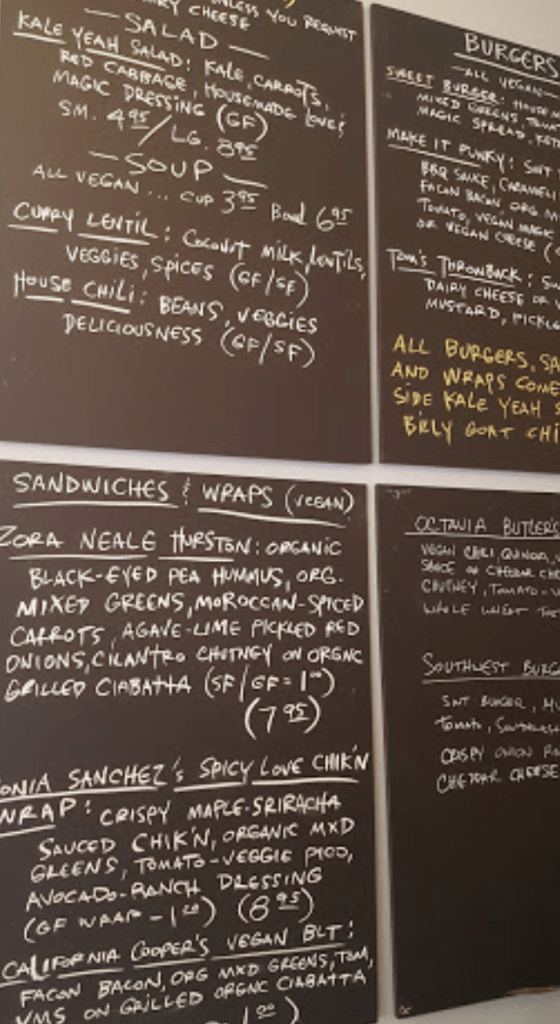 UNLESS YOU REQUEST
DAIRY CHEESE
— SALAD —
KALE YEAH SALAD: KALE, CARROTS,
RED CABBAGE, HOUSEMADE LOVE,
MAGIC DRESSING (GF)
SM. 4.95 / LG. 8.95
— SOUP —
ALL VEGAN ... CUP 3.95 Bowl 6.95
CURRY LENTIL: COCONUT MILK, LENTILS,
VEGGIES, SPICES (GF/SF)
HOUSE CHILI: BEANS, VEGGIES
DELICIOUSNESS (GF/SF)
BURGERS
— ALL VEGAN —
SWEET BURGER: HOUSE
MIXED GREENS,
MAGIC SPREAD,
MAKE IT FUNKY:
BBQ SAUCE, CARAMEL
FACON BACON, ORG
TOMATO, VEGAN MAGIC
OR VEGAN CHEESE
TOM'S THROWBACK:
DAIRY CHEESE OR
MUSTARD, PICKL
ALL BURGERS, SA
AND WRAPS COME
SIDE KALE YEAH S
BILLY GOAT CHI
SANDWICHES & WRAPS (VEGAN)
ZORA NEALE HURSTON: ORGANIC
BLACK-EYED PEA HUMMUS, ORG.
MIXED GREENS, MOROCCAN-SPICED
CARROTS, AGAVE-LIME PICKLED RED
ONIONS, CILANTRO CHUTNEY ON ORGNC
GRILLED CIABATTA (SF/GF = 1.00)
(7.95)
SONIA SANCHEZ'S SPICY LOVE CHIK'N
WRAP: CRISPY MAPLE-SRIRACHA
SAUCED CHIK'N, ORGANIC MXD
GREENS, TOMATO-VEGGIE PICO,
AVOCADO-RANCH DRESSING
(GF WRAP - 1.50) (8.95)
CALIFORNIA COOPER'S VEGAN BLT:
FACON BACON, ORG MXD GREENS, TOM,
VMS ON GRILLED ORGNC CIABATTA,
1.00)
OCTAVIA BUTLER
VEGAN CHILI, QUINOA,
SAUCE OR CHEDDAR CH
CHUTNEY, TOMATO
WHOLE WHEAT
SOUTHWEST BURG
TOMATO, SOUTHWEST
CRISPY ONION
CHEDDAR CHEESE